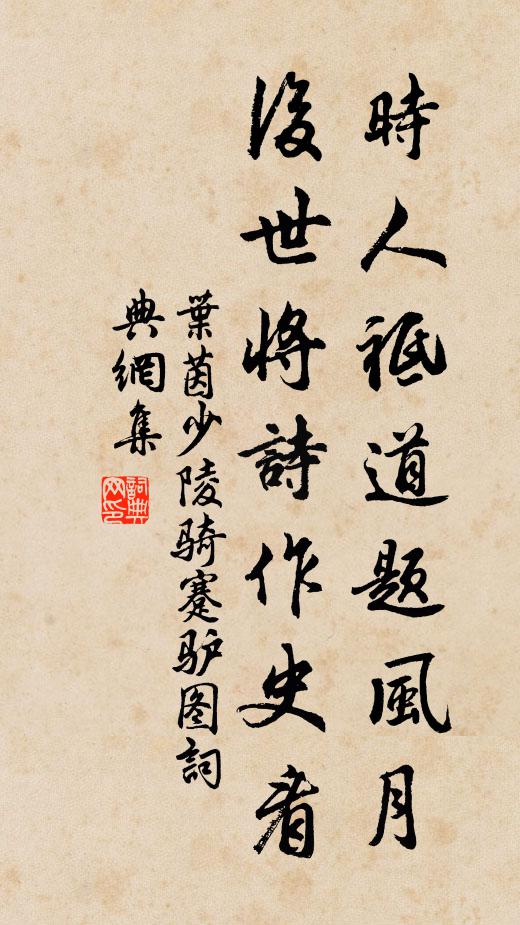 時人祗道題風月
後世將詩作史看
葉茵少陵骑蹇驴图詞
典網集
詞典
网印